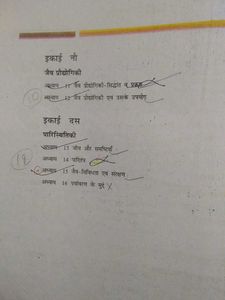 इकाई नौ
जैव प्रौद्योगिकी
अध्याय 11 जैव प्रौद्योगिकी-सिद्धांत व
अध्याय 12 जैव प्रौद्योगिकी एवं उसके उपयोग
इकाई दस
पारिस्थितिकी
अध्याय 13 जीव और समष्टियाँ
अध्याय 14 पारितंत्र
अध्याय 15 जैव-विविधता एवं संरक्षण
अध्याय 16 पर्यावरण के मुद्दे